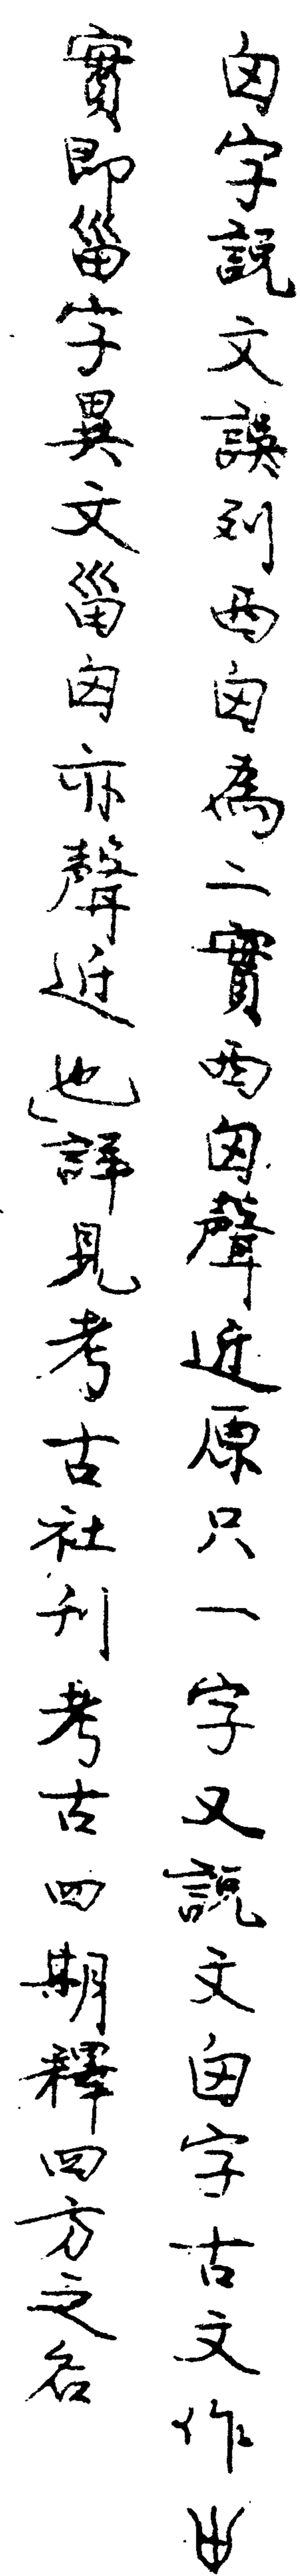 囟字說文誤列西囟為二實西囟聲近原只一字又說文囟字古文作𠙹
實即甾字異文甾囟亦聲近也詳見考古社刊考古四期釋四方之名